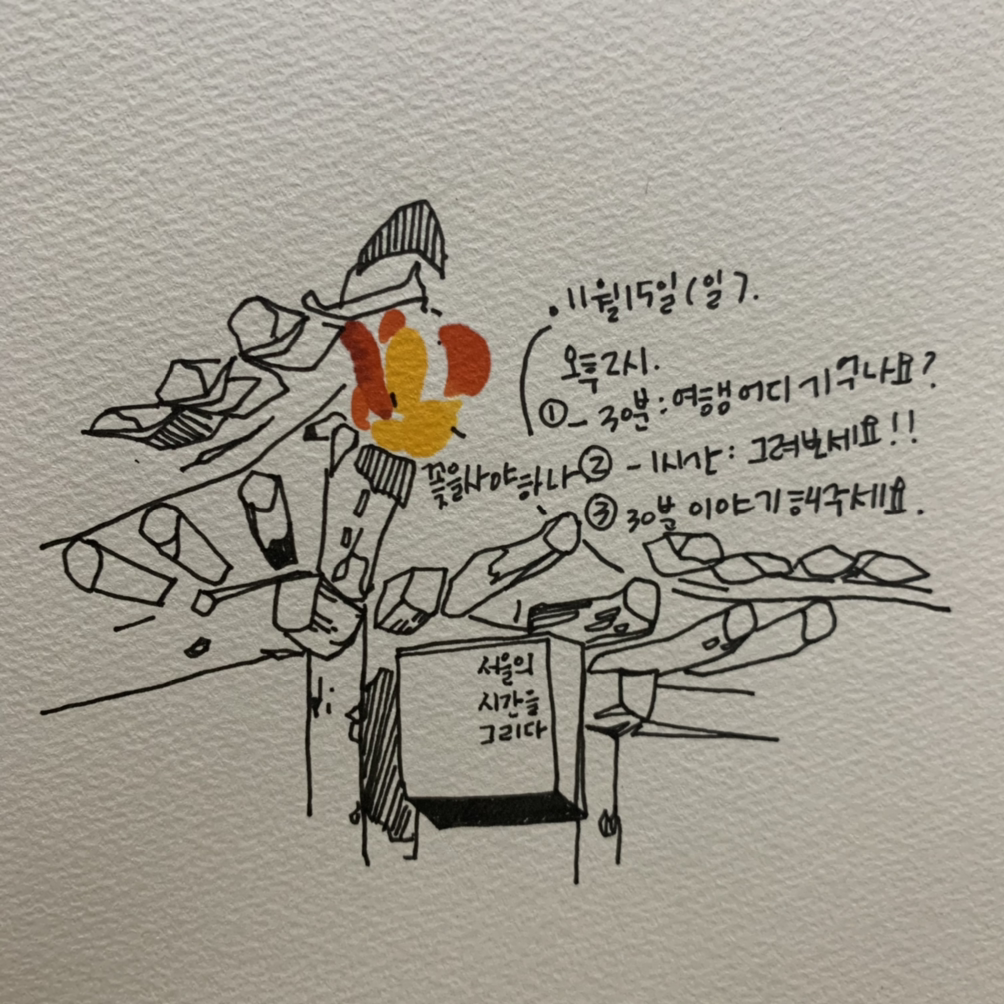 . 11월15일(일).
오후2시.
①- 30분:여행어디 기 구나요?
② -1시간: 그려보세요!!
③ 30분 이야기해주세요.
꽃을사야하나
서울의
시간을
그리다